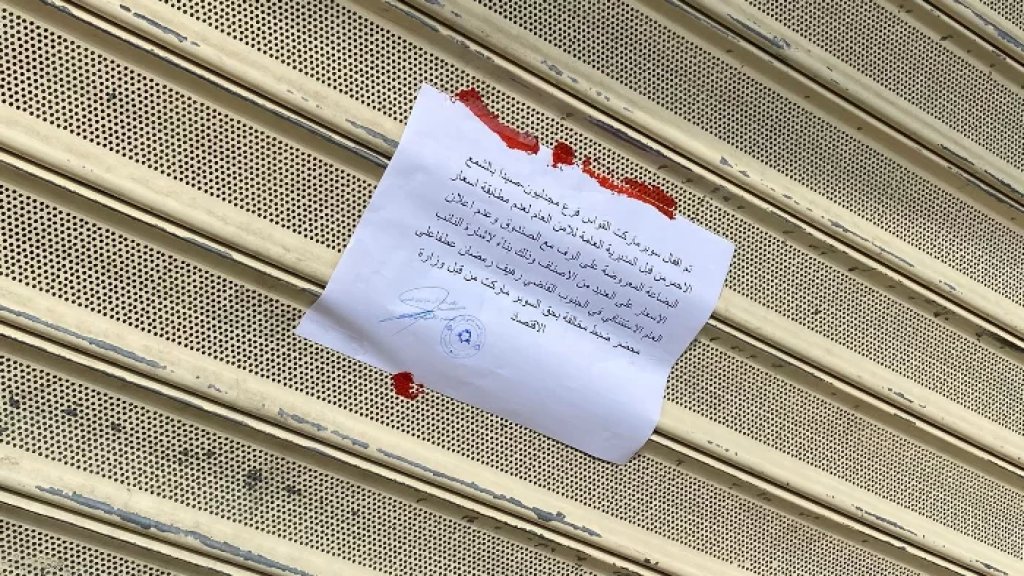 تم اقفال سوبر ماركت القواس فرع مجدليون-صيدا بالشمع
الاحمر من قبل المديرية العامة للامن العام لعدم مطابقة اسعار
البضاعة المعروضة على الرف مع الصندوق وعدم اعلان
الاسعار على العديد من الاصنف وذلك بناء لاشارة النائب
العام الاستئنافي في الجنوب القاضي رهيف رمضان عطفاعلى
محضر ضبط مخالفة بحق السوبر ماركت من قبل وزارة
الاقتصاد